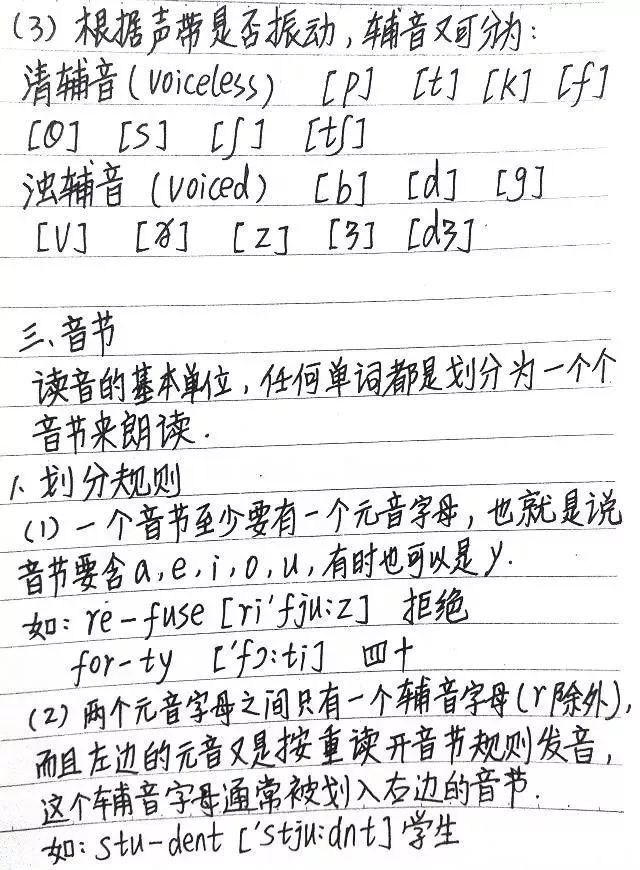 (3) 根据声带是否振动，辅音又可分为：
清辅音(voiceless) [p] [t] [k] [f]
[θ] [s] [ʃ] [tʃ]
浊辅音 (voiced) [b] [d] [g]
[v] [ð] [z] [ʒ] [dʒ]
三、音节
读音的基本单位，任何单词都是划分为一个个
音节来朗读.
1. 划分规则
(1) 一个音节至少要有一个元音字母，也就是说
音节要含a,e,i,o,u,有时也可以是y.
如: re-fuse [ri'fju:z] 拒绝
for-ty ['fɔ:ti] 四十
(2) 两个元音字母之间只有一个辅音字母(r除外),
而且左边的元音又是按重读开音节规则发音,
这个辅音字母通常被划入右边的音节.
如: stu-dent ['stju:dnt] 学生